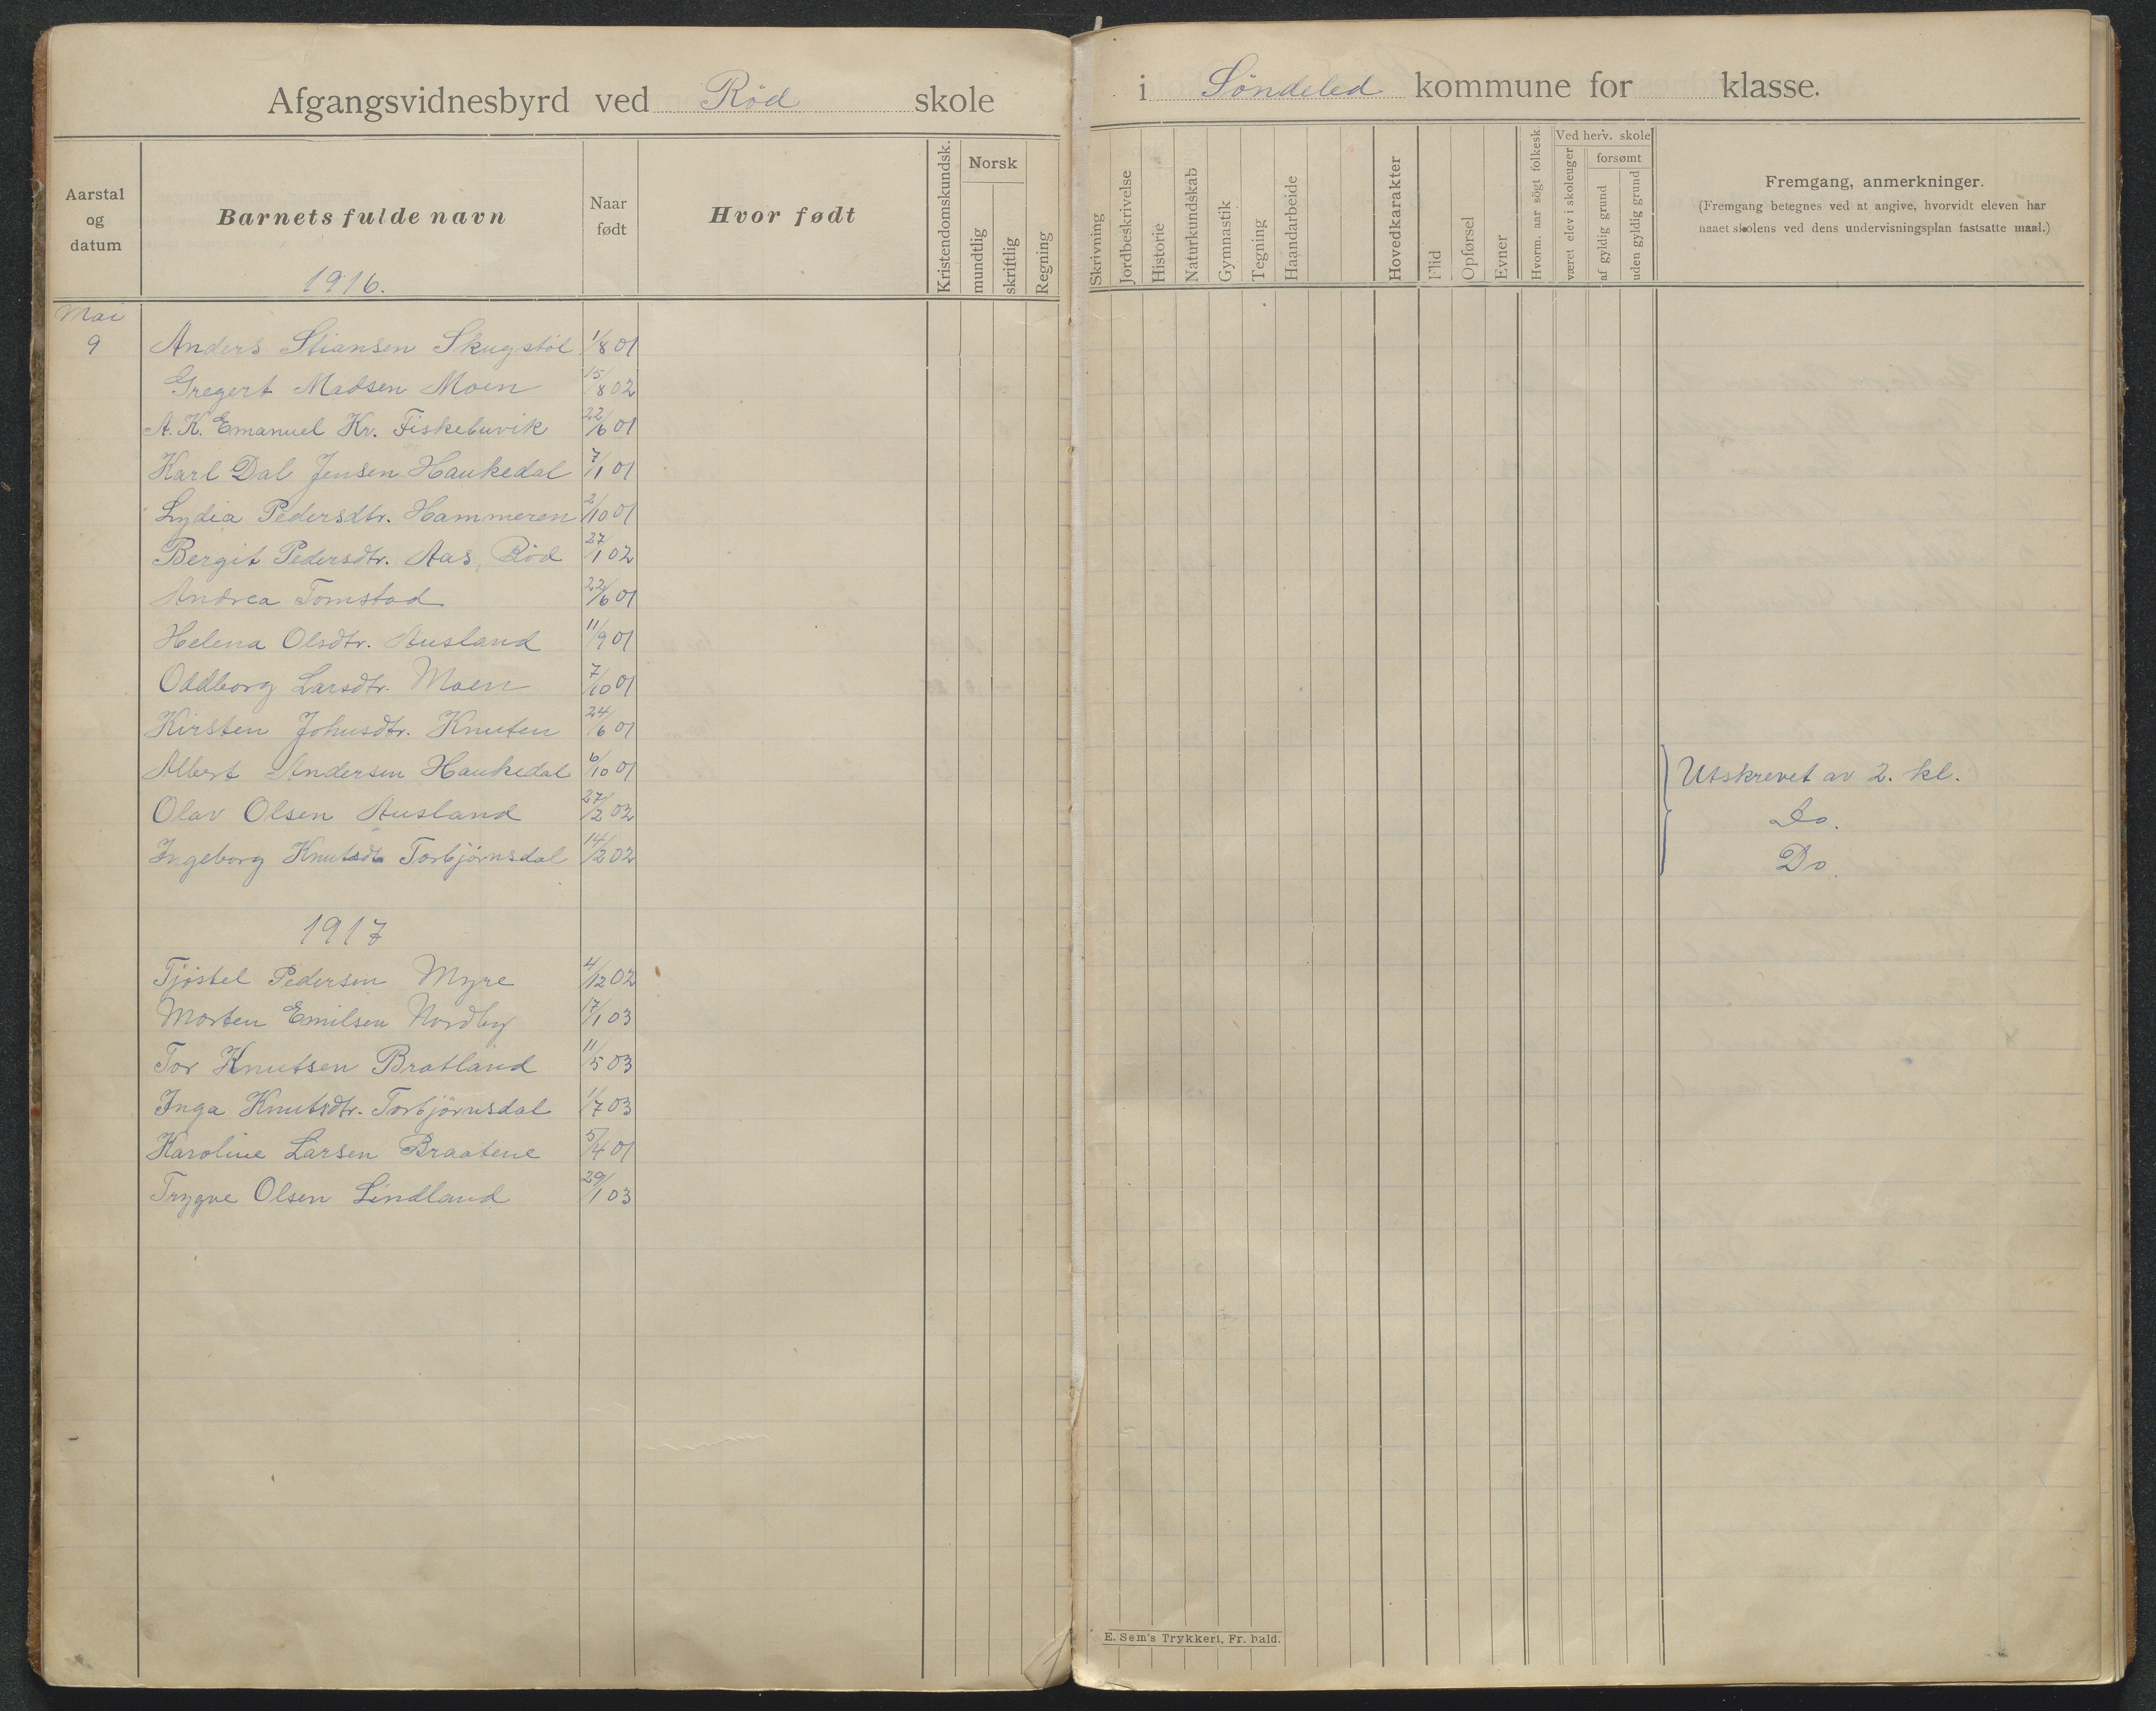 Afgangsvidnesbyrd ved Röd skole
i Söndeled kommune for klasse.
Aarstal og datum
Barnets fulde navn
Naar født
Hvor født
Kristendomskundsk.
Norsk
mundtlig
skriftlig
Regning
Skrivning
Jordbeskrivelse
Historie
Naturkundskab
Gymnastik
Tegning
Haandarbeide
Hovedkarakter
Flid
Opførsel
Evner
Hvorm. aar søgt folkesk
Ved herv. skole
været elev i skoleuger
forsømt
af gyldig grund
uden gyldig grund
Fremgang, anmerkninger.
(Fremgang betegnes ved at angive, hvorvidt eleven har
naaet skolens ved dens undervisningsplan fastsatte maal.)
1916.
Mai
9 Anders Stiansen Skugstöl 1/8 01
Gregert Madsen Moen 15/8 02
A. K. Emanuel Kr. Fiskebuvik 22/6 01
Karl Dal Jensen Haukedal 7/1 01
Lydia Pedersdtr. Hammeren 2/10 01
Bergit Pedersdtr. Aas, Röd 27/1 02
Andrea Tomstad 22/6 01
Helena Olsdtr. Ausland 11/9 01
Oddborg Larsdtr. Moen 7/10 01
Kirsten Johnsdtr. Knuten 24/6 01
Albert Andersen Haukedal 6/10 01 Utskrevet av 2. kl.
Olav Olsen Ausland 27/2 02 Do.
Ingeborg Knutsdtr Torbjörnsdal 14/2 02 Do.
1917
Tjöstel Pedersen Myre 4/12 02
Morten Emilsen Nordby 17/1 03
Tor Knutsen Bratland 11/5 03
Inga Knutsdtr. Torbjörnsdal 1/7 03
Karoline Larsen Braatene 5/4 01
Trygve Olsen Lindland 29/1 03
E. Sem's Trykkeri, Fr. hald.